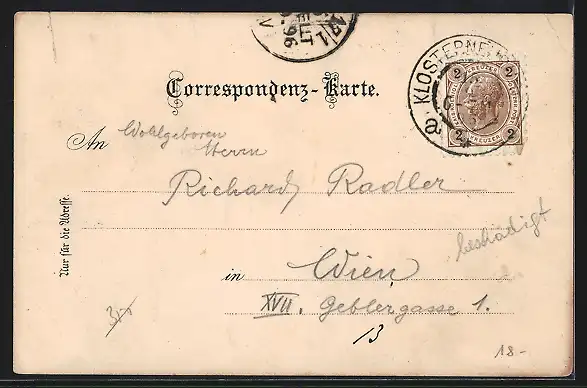 Correspondenz-Karte.
KLOSTERNEU
a
2 KREUZER 2
2 KREUZER 2
96
An Wohlgeboren
Herrn
Richard Radler
in Wien
XVII. Geblergasse 1.
13
Nur für die Adresse.
beschädigt
18-